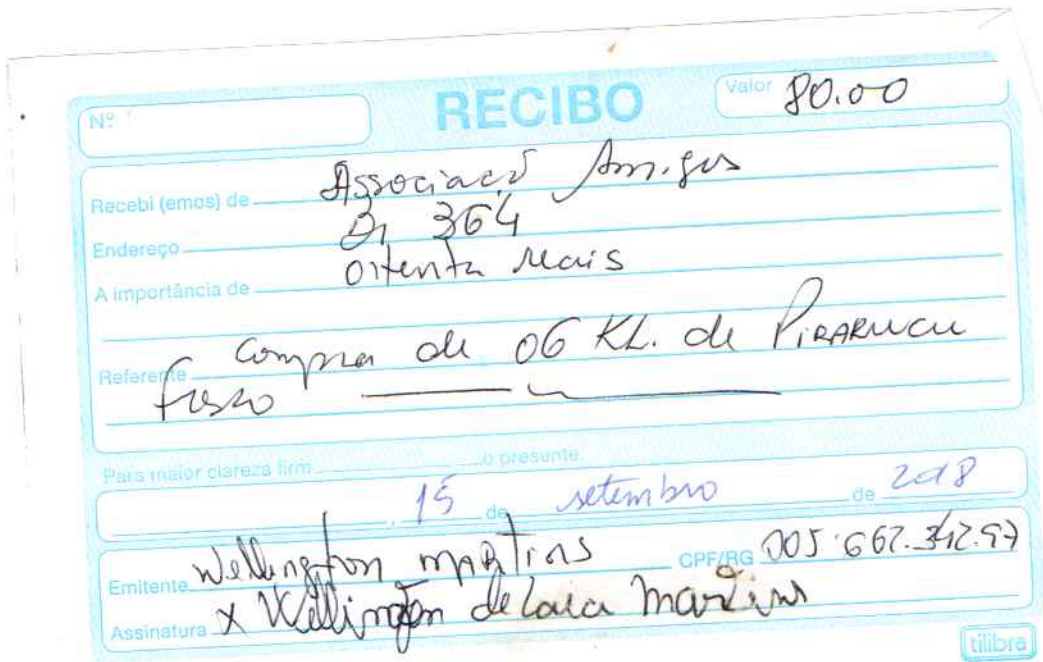 Nº
RECIBO
Valor 80.00
Recebi (emos) de Associaçó Amigos
Endereço Br 364
A importância de oitenta reais
Referente Compra de 06 KL. de PIRARUCU
fresco
Para maior clareza firm o presente
15 de setembro de 2018
Emitente Wellington MARTINS CPF/RG 005.662.342.97
Assinatura X Wellington de Lara Martins
tilibra